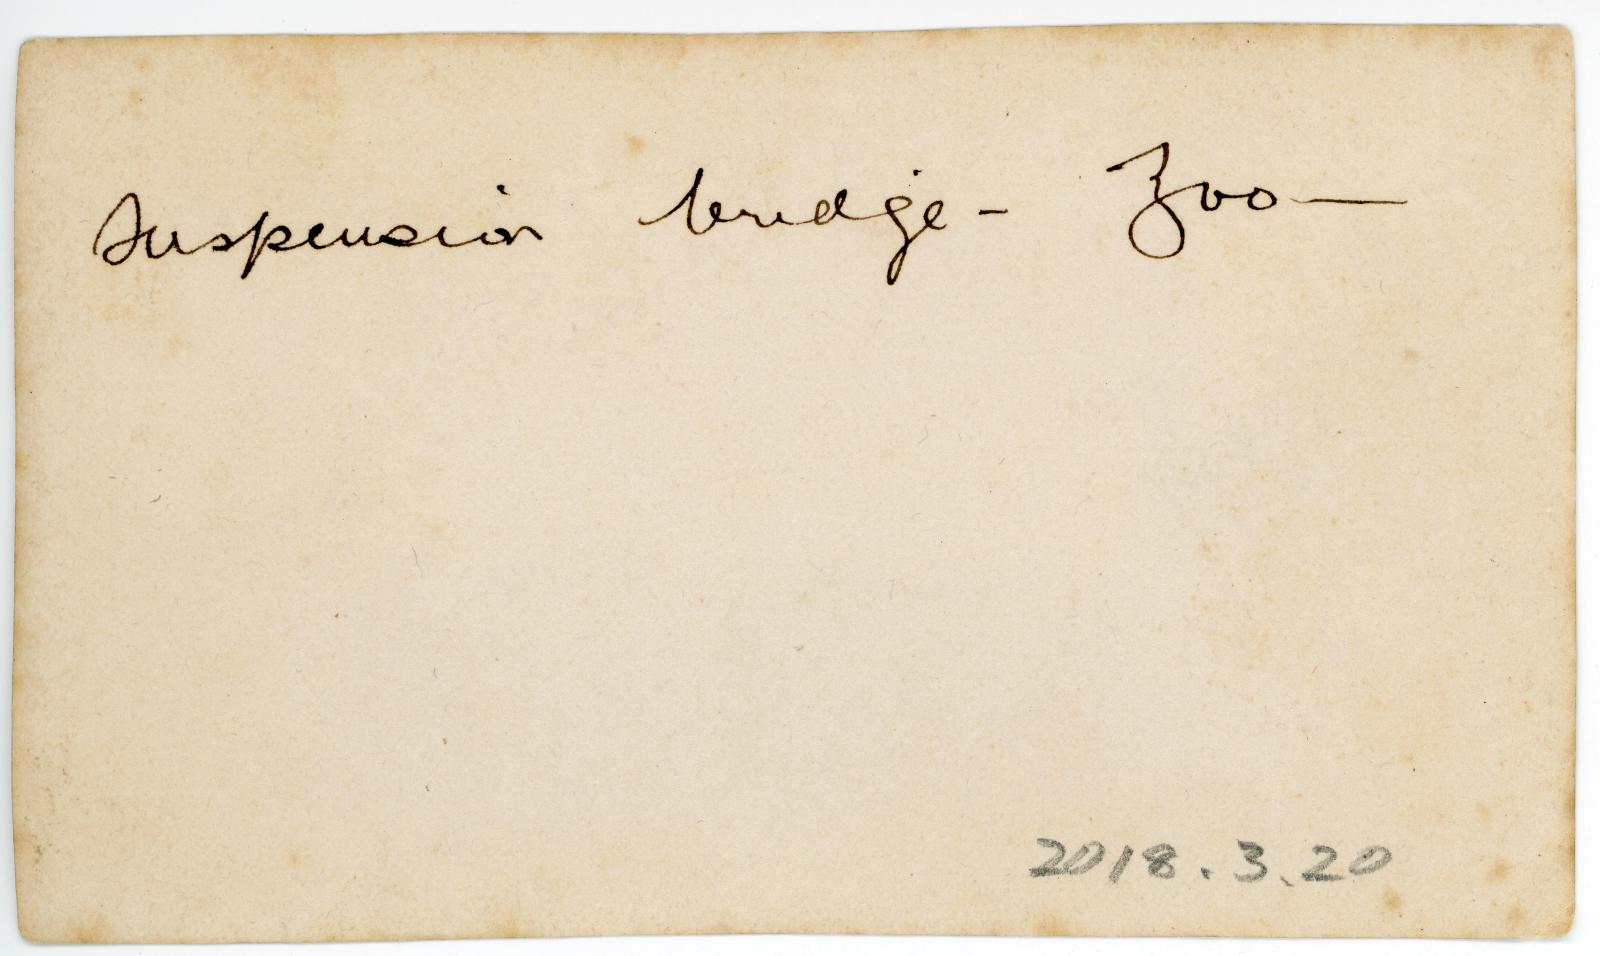 Suspension bridge - Zoo —
2018.3.20